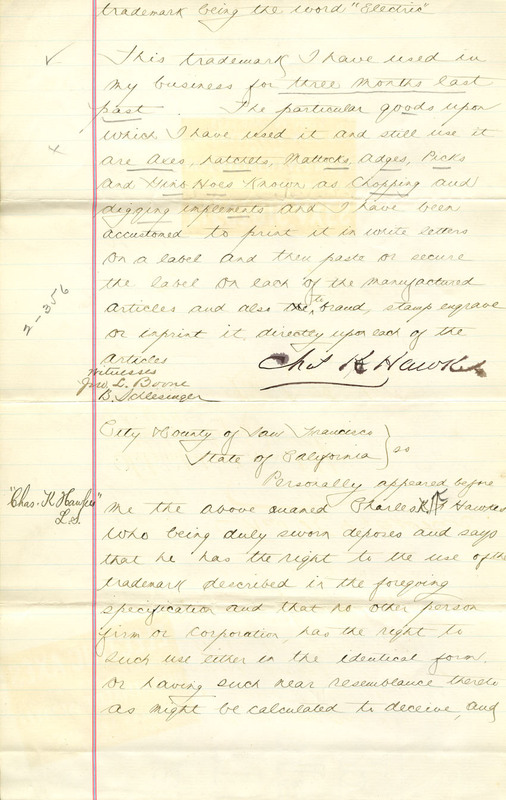 trademark being the word "Electric"
This trademark I have used in
my business for three months last
past. The particular goods upon
which I have used it and still use it
are Axes, hatchets, Mattocks, Adges, Picks
and Hoes Known as Chopping and
digging implements and I have been
accustomed to print it in write letters
on a label and then paste or secure
the label on each of the manufactured
articles and also to brand, stamp engrave
or imprint it directly upon each of the
articles
Chas K Hawkes
Witnesses
Jno. L. Boone
B. Schlesinger
2-356
City & County of San Francisco
State of California } ss
Personally appeared before
"Chas. K Hawkes"
L.S.
me the above named Charles K Hawkes
who being duly sworn deposes and says
that he has the right to the use of the
trademark described in the foregoing
specification and that no other person
firm or corporation, has the right to
such use either in the identical form.
or having such near resemblance thereto
as might be calculated to deceive, and